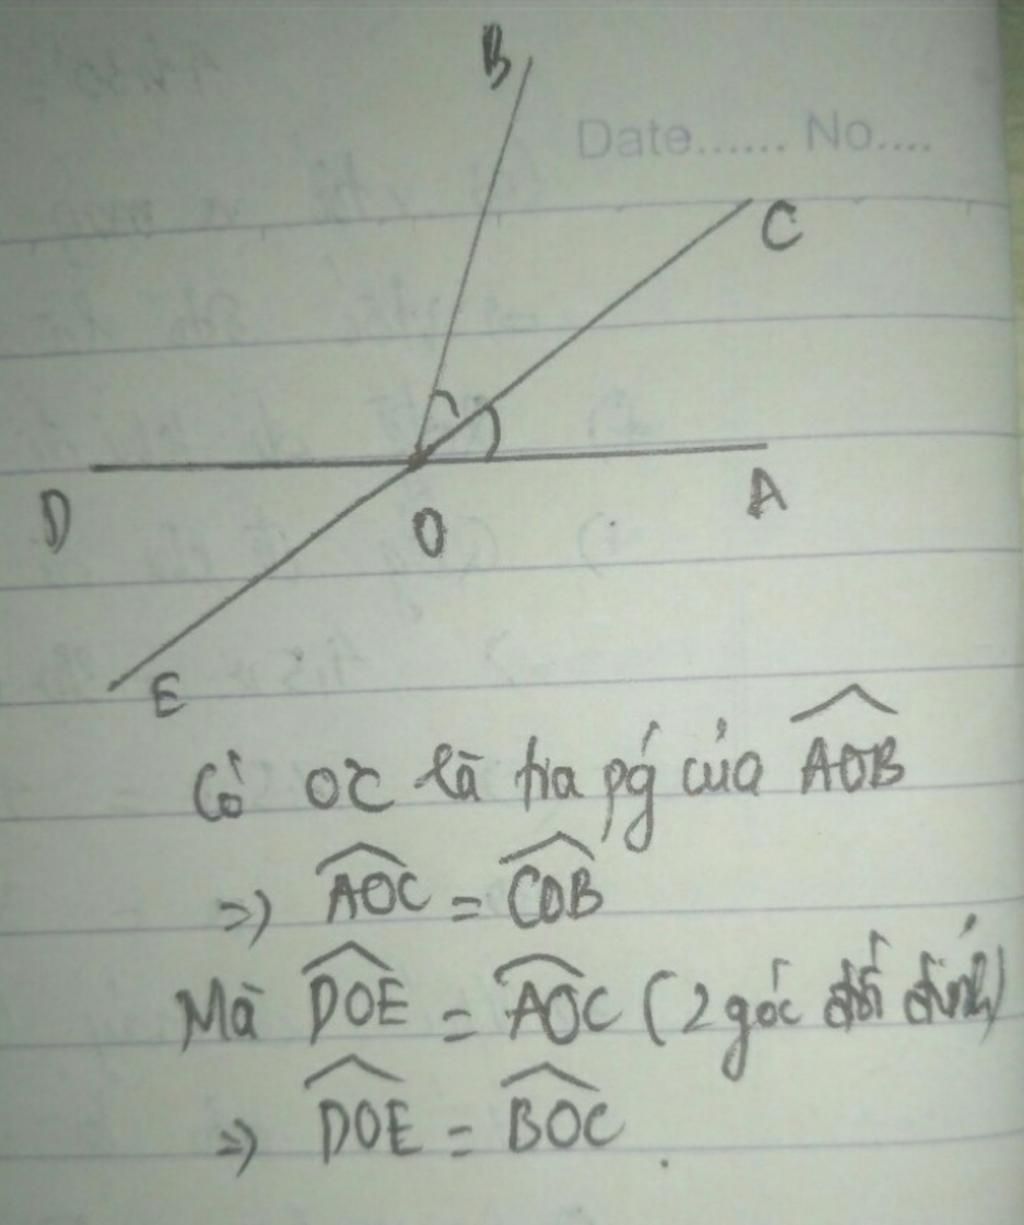 B
Date...... No....
C
D
O
A
E
Có OC là tia pg của AOB
=> AOC = COB
Mà DOE = AOC (2 góc đối đỉnh)
=> DOE = BOC.